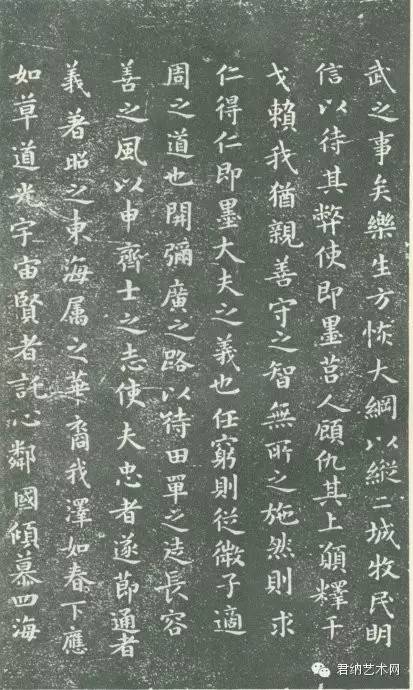 武之事矣樂生方恢大綱以縱二城牧民明
信以待其弊使即墨莒人顧仇其上願釋干
戈賴我猶親善守之智無所之施然則求
仁得仁即墨大夫之義也任窮則從微子適
周之道也開彌廣之路以待田單之徒長容
善之風以申齊士之志使夫忠者遂節通者
義著昭之東海属之華裔我澤如春下應
如草道光宇宙賢者託心鄰國傾慕四海
君纳艺术网